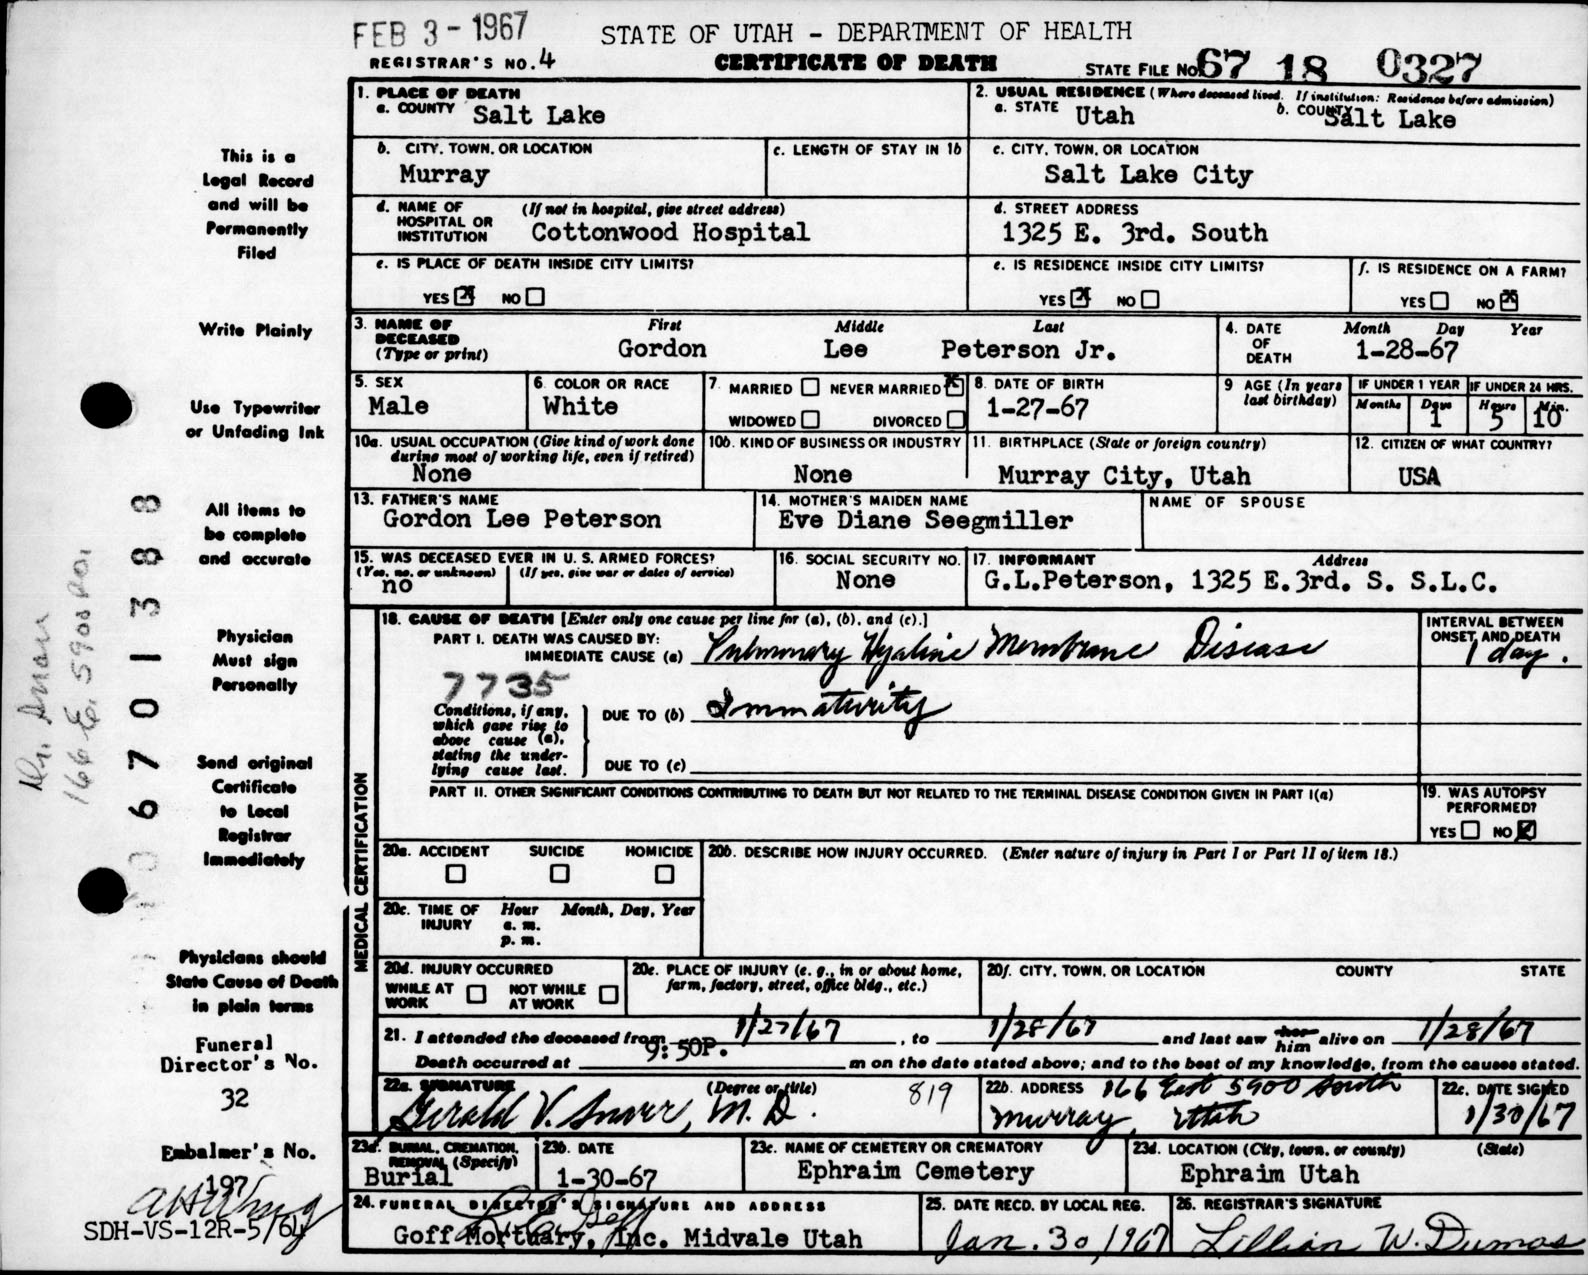 FEB 3 - 1967
STATE OF UTAH - DEPARTMENT OF HEALTH
REGISTRAR'S NO. 4
CERTIFICATE OF DEATH
STATE FILE NO. 67 18 0327
1. PLACE OF DEATH
a. COUNTY Salt Lake
2. USUAL RESIDENCE (Where deceased lived. If institution: Residence before admission)
a. STATE Utah b. COUNTY Salt Lake
b. CITY, TOWN, OR LOCATION
Murray
c. LENGTH OF STAY IN 1b
c. CITY, TOWN, OR LOCATION
Salt Lake City
d. NAME OF HOSPITAL OR INSTITUTION (If not in hospital, give street address)
Cottonwood Hospital
d. STREET ADDRESS
1325 E. 3rd. South
e. IS PLACE OF DEATH INSIDE CITY LIMITS?
YES X NO
e. IS RESIDENCE INSIDE CITY LIMITS?
YES X NO
f. IS RESIDENCE ON A FARM?
YES NO X
3. NAME OF DECEASED (Type or print)
First Middle Last
Gordon Lee Peterson Jr.
4. DATE OF DEATH Month Day Year
1-28-67
5. SEX
Male
6. COLOR OR RACE
White
7. MARRIED NEVER MARRIED X
WIDOWED DIVORCED
8. DATE OF BIRTH
1-27-67
9 AGE (In years last birthday)
IF UNDER 1 YEAR IF UNDER 24 HRS.
Months Days Hours Min.
1 5 10
10a. USUAL OCCUPATION (Give kind of work done during most of working life, even if retired)
None
10b. KIND OF BUSINESS OR INDUSTRY
None
11. BIRTHPLACE (State or foreign country)
Murray City, Utah
12. CITIZEN OF WHAT COUNTRY?
USA
13. FATHER'S NAME
Gordon Lee Peterson
14. MOTHER'S MAIDEN NAME
Eve Diane Seegmiller
NAME OF SPOUSE
15. WAS DECEASED EVER IN U. S. ARMED FORCES?
(Yes, no, or unknown) (If yes, give war or dates of service)
no
16. SOCIAL SECURITY NO.
None
17. INFORMANT Address
G.L.Peterson, 1325 E.3rd. S. S.L.C.
18. CAUSE OF DEATH [Enter only one cause per line for (a), (b), and (c).]
PART I. DEATH WAS CAUSED BY:
IMMEDIATE CAUSE (a) Pulmonary Hyaline Membrane Disease
INTERVAL BETWEEN ONSET AND DEATH
1 day.
7735
Conditions, if any, which gave rise to above cause (a), stating the underlying cause last.
DUE TO (b) Immaturity
DUE TO (c)
PART II. OTHER SIGNIFICANT CONDITIONS CONTRIBUTING TO DEATH BUT NOT RELATED TO THE TERMINAL DISEASE CONDITION GIVEN IN PART I(a)
19. WAS AUTOPSY PERFORMED?
YES NO
MEDICAL CERTIFICATION
20a. ACCIDENT SUICIDE HOMICIDE
20b. DESCRIBE HOW INJURY OCCURRED. (Enter nature of injury in Part I or Part II of item 18.)
20c. TIME OF INJURY Hour Month, Day, Year
a. m.
p. m.
20d. INJURY OCCURRED
WHILE AT WORK NOT WHILE AT WORK
20e. PLACE OF INJURY (e. g., in or about home, farm, factory, street, office bldg., etc.)
20f. CITY, TOWN, OR LOCATION COUNTY STATE
21. I attended the deceased from 1/27/67, to 1/28/67 and last saw her him alive on 1/28/67
Death occurred at 9:50P. m on the date stated above; and to the best of my knowledge, from the causes stated.
22a. SIGNATURE (Degree or title)
Gerald V. M. D. 819
22b. ADDRESS 166 East 5900 South
Murray, Utah
22c. DATE SIGNED
1/30/67
23a. BURIAL, CREMATION, REMOVAL (Specify)
Burial
23b. DATE
1-30-67
23c. NAME OF CEMETERY OR CREMATORY
Ephraim Cemetery
23d. LOCATION (City, town, or county) (State)
Ephraim Utah
24. FUNERAL DIRECTOR'S SIGNATURE AND ADDRESS
Goff Mortuary, Inc. Midvale Utah
25. DATE RECD. BY LOCAL REG.
Jan. 30, 1967
26. REGISTRAR'S SIGNATURE
Lillian W. Dumas
This is a
Legal Record
and will be
Permanently
Filed
Write Plainly
Use Typewriter
or Unfading Ink
All items to
be complete
and accurate
Physician
Must sign
Personally
Send original
Certificate
to Local
Registrar
Immediately
Physicians should
State Cause of Death
in plain terms
Funeral
Director's No.
32
Embalmer's No.
197
SDH-VS-12R-5/64
6701388
166 E. 5900 So.